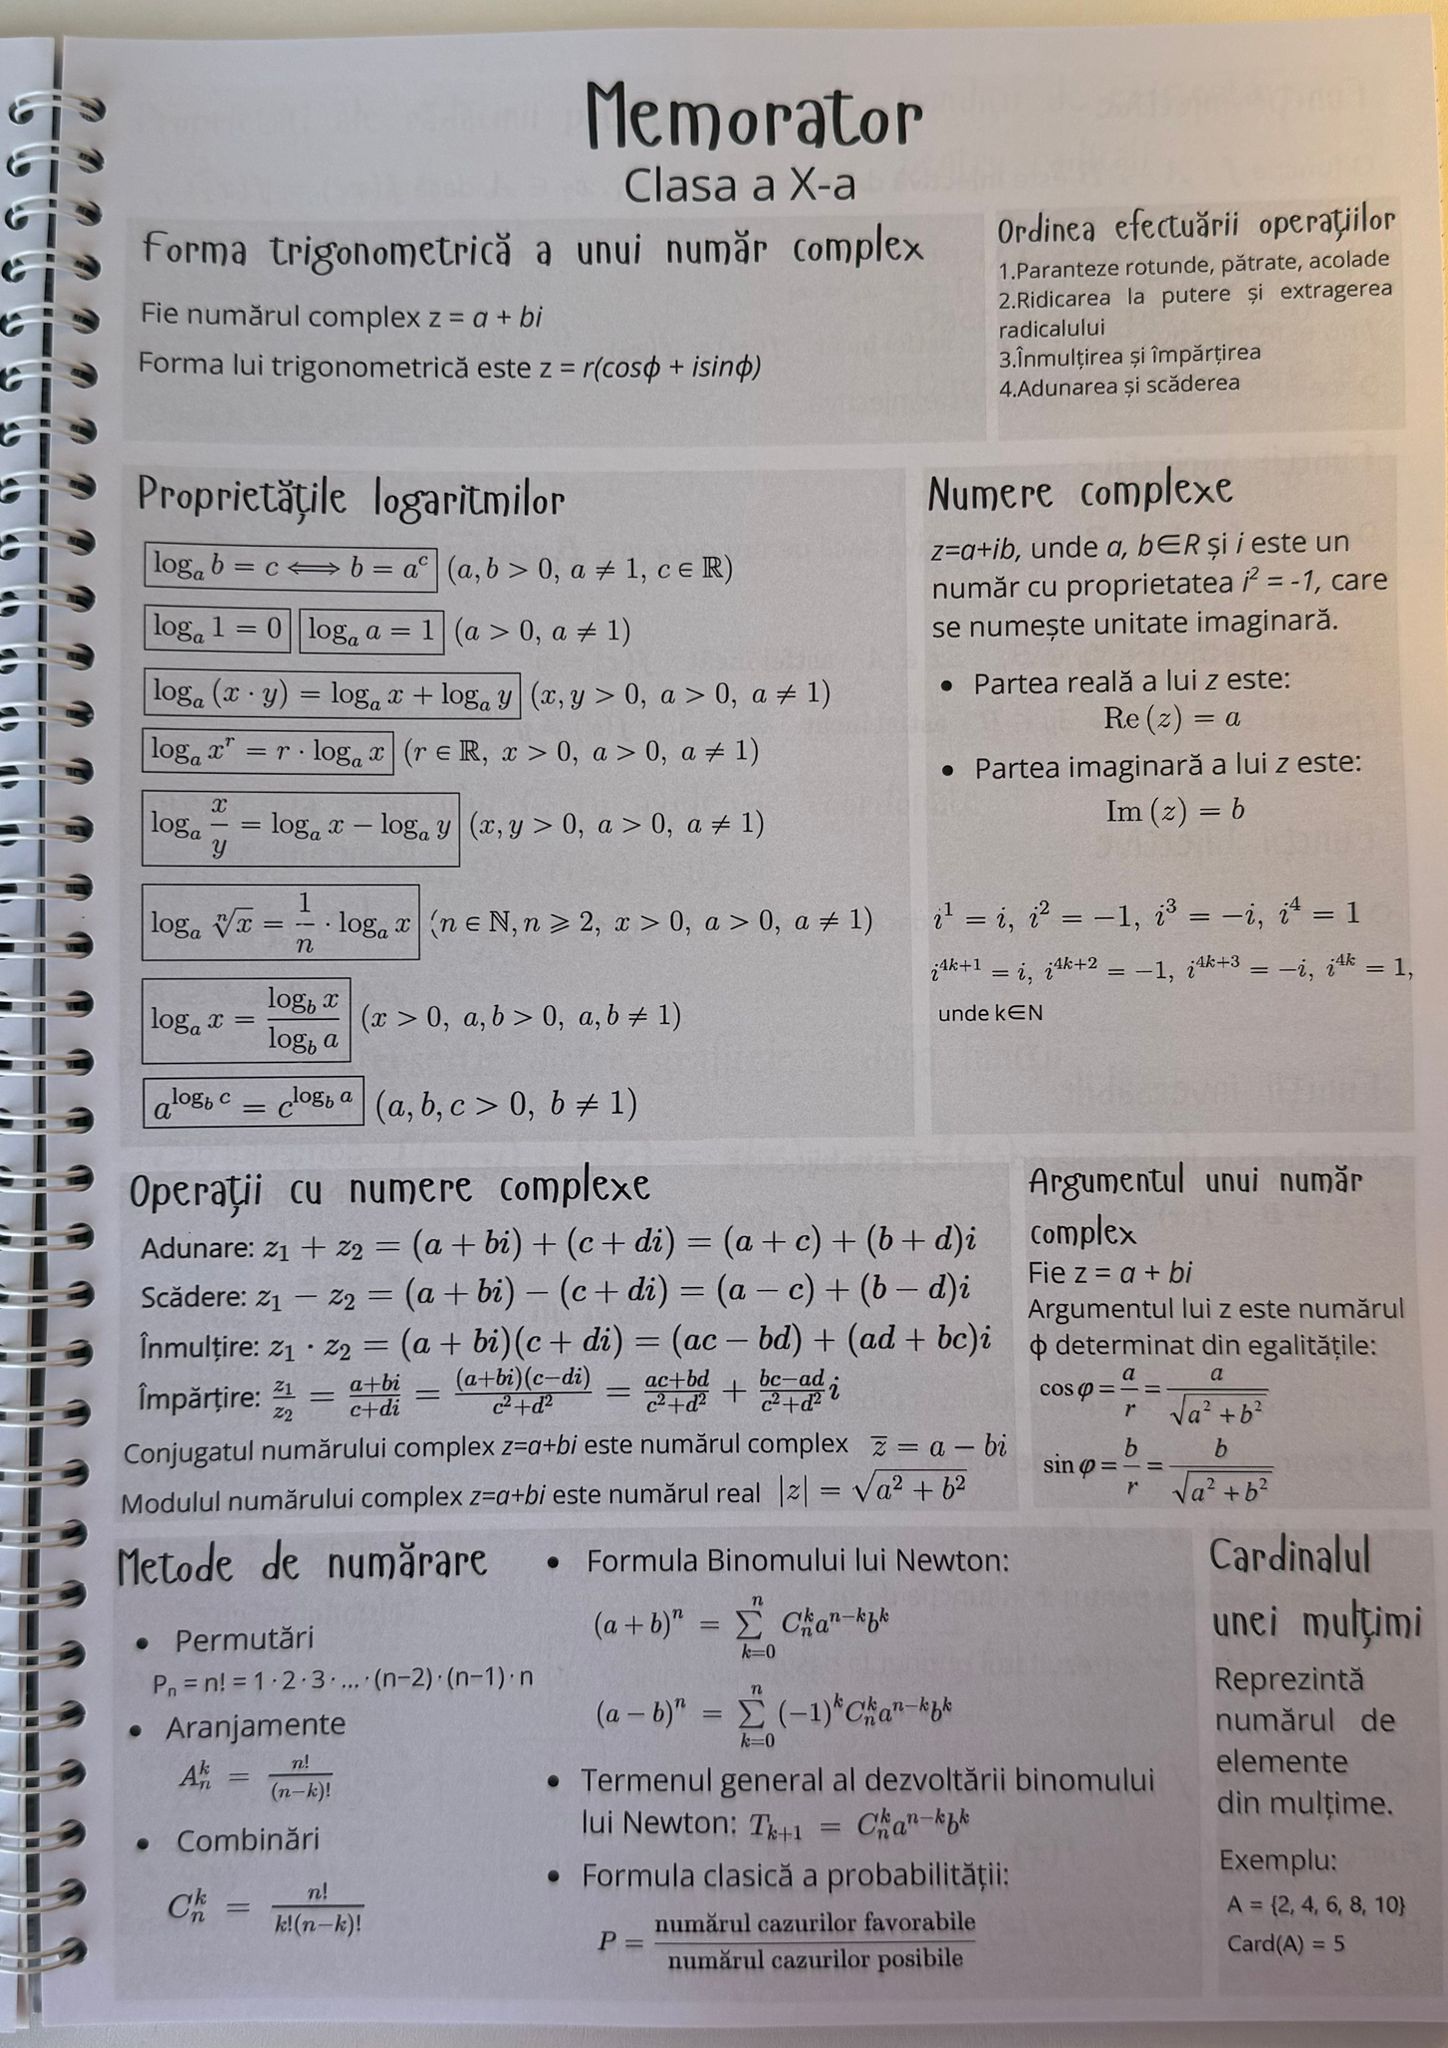 Memorator
Clasa a X-a
Forma trigonometrică a unui număr complex
Fie numărul complex z = a + bi
Forma lui trigonometrică este z = r(cosϕ + isinϕ)
Ordinea efectuării operațiilor
1.Paranteze rotunde, pătrate, acolade
2.Ridicarea la putere și extragerea
radicalului
3.Înmulțirea și împărțirea
4.Adunarea și scăderea
Proprietățile logaritmilor
logₐ b = c ⟺ b = aᶜ (a, b > 0, a ≠ 1, c ∈ ℝ)
logₐ 1 = 0 logₐ a = 1 (a > 0, a ≠ 1)
logₐ (x · y) = logₐ x + logₐ y (x, y > 0, a > 0, a ≠ 1)
logₐ xʳ = r · logₐ x (r ∈ ℝ, x > 0, a > 0, a ≠ 1)
logₐ x/y = logₐ x − logₐ y (x, y > 0, a > 0, a ≠ 1)
logₐ ⁿ√x = 1/n · logₐ x (n ∈ ℕ, n ⩾ 2, x > 0, a > 0, a ≠ 1)
logₐ x = log_b x / log_b a (x > 0, a, b > 0, a, b ≠ 1)
a^(log_b c) = c^(log_b a) (a, b, c > 0, b ≠ 1)
Numere complexe
z=a+ib, unde a, b∈R și i este un
număr cu proprietatea i² = -1, care
se numește unitate imaginară.
• Partea reală a lui z este:
Re (z) = a
• Partea imaginară a lui z este:
Im (z) = b
i¹ = i, i² = −1, i³ = −i, i⁴ = 1
i⁴ᵏ⁺¹ = i, i⁴ᵏ⁺² = −1, i⁴ᵏ⁺³ = −i, i⁴ᵏ = 1,
unde k∈N
Operații cu numere complexe
Adunare: z₁ + z₂ = (a + bi) + (c + di) = (a + c) + (b + d)i
Scădere: z₁ − z₂ = (a + bi) − (c + di) = (a − c) + (b − d)i
Înmulțire: z₁ · z₂ = (a + bi)(c + di) = (ac − bd) + (ad + bc)i
Împărțire: z₁/z₂ = (a+bi)/(c+di) = (a+bi)(c−di)/(c²+d²) = (ac+bd)/(c²+d²) + (bc−ad)/(c²+d²) i
Conjugatul numărului complex z=a+bi este numărul complex z̅ = a − bi
Modulul numărului complex z=a+bi este numărul real |z| = √(a² + b²)
Argumentul unui număr
complex
Fie z = a + bi
Argumentul lui z este numărul
ϕ determinat din egalitățile:
cos φ = a/r = a/√(a² + b²)
sin φ = b/r = b/√(a² + b²)
Metode de numărare
• Permutări
Pₙ = n! = 1 · 2 · 3 · ... · (n−2) · (n−1) · n
• Aranjamente
Aₙᵏ = n!/(n−k)!
• Combinări
Cₙᵏ = n!/k!(n−k)!
• Formula Binomului lui Newton:
(a + b)ⁿ = ∑ₖ₌₀ⁿ Cₙᵏaⁿ⁻ᵏbᵏ
(a − b)ⁿ = ∑ₖ₌₀ⁿ (−1)ᵏCₙᵏaⁿ⁻ᵏbᵏ
• Termenul general al dezvoltării binomului
lui Newton: Tₖ₊₁ = Cₙᵏaⁿ⁻ᵏbᵏ
• Formula clasică a probabilității:
P = numărul cazurilor favorabile
numărul cazurilor posibile
Cardinalul
unei mulțimi
Reprezintă
numărul de
elemente
din mulțime.
Exemplu:
A = {2, 4, 6, 8, 10}
Card(A) = 5